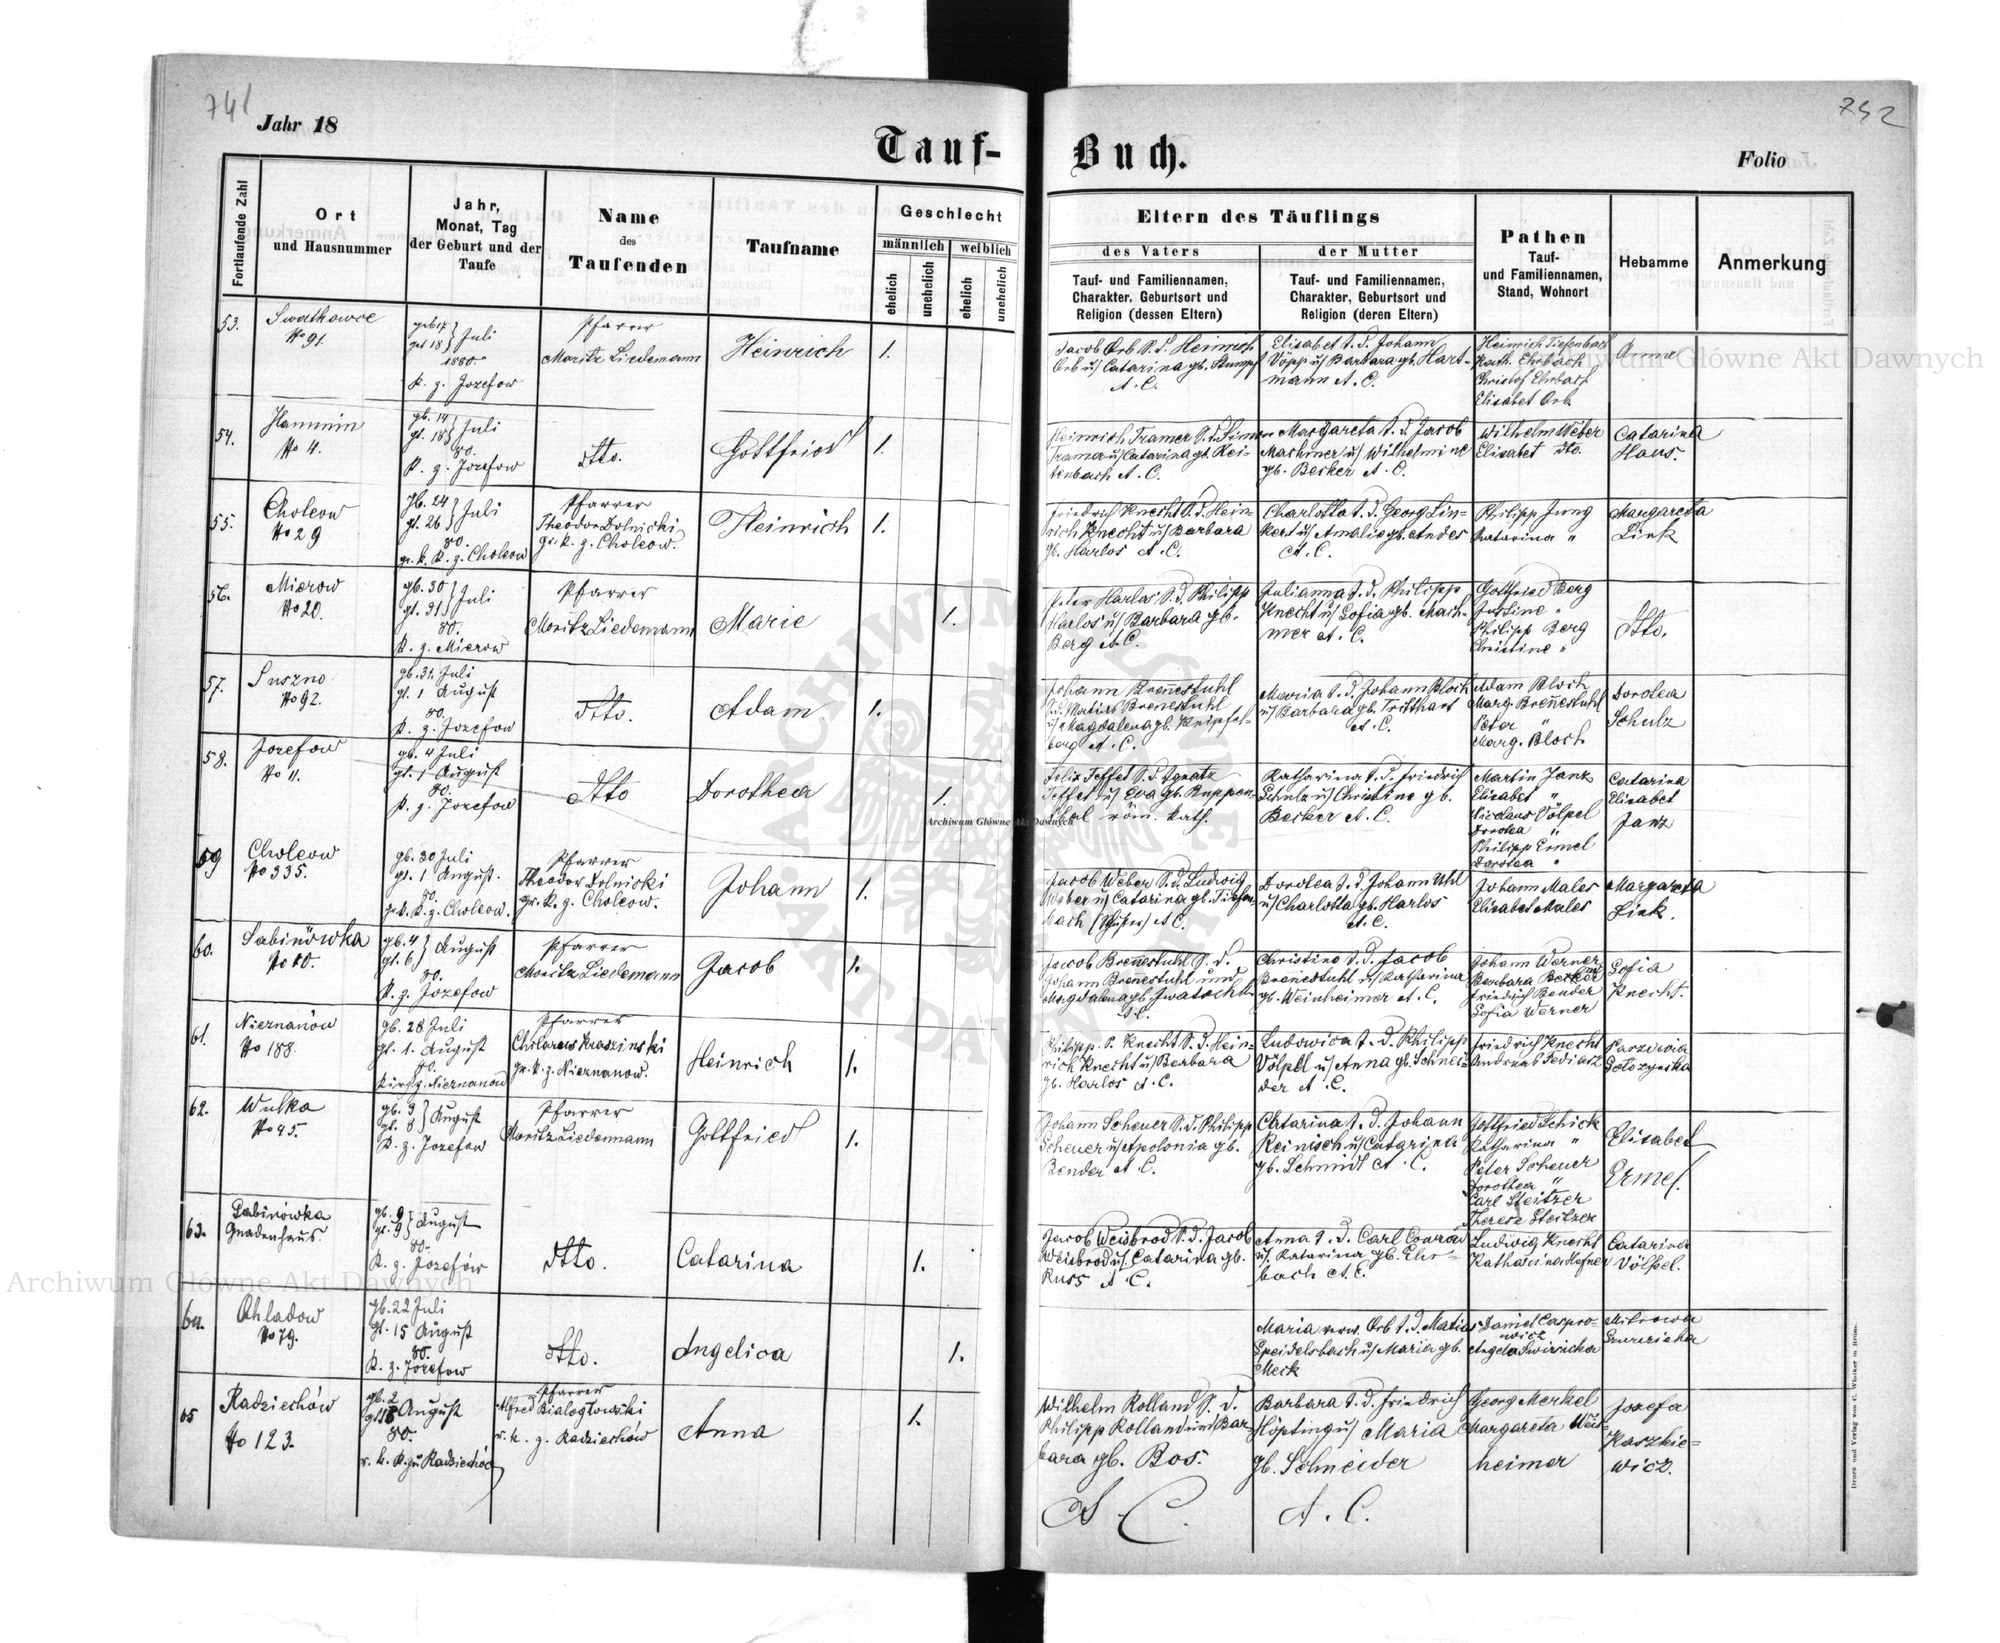 741
752
Jahr 18
Tauf-
Buch.
Folio
Fortlaufende Zahl
Ort
und Hausnummer
Jahr,
Monat, Tag
der Geburt und der
Taufe
Name
des
Taufenden
Taufname
Geschlecht
männlich
weiblich
ehelich
unehelich
ehelich
unehelich
Eltern des Täuflings
des Vaters
der Mutter
Tauf- und Familiennamen,
Charakter, Geburtsort und
Religion (dessen Eltern)
Tauf- und Familiennamen,
Charakter, Geburtsort und
Religion (deren Eltern)
Pathen
Tauf-
und Familiennamen,
Stand, Wohnort
Hebamme
Anmerkung
53.
No 91.
Juli
1880.
K. z. Jozefow
Pfarrer
Moritz Liedemann
Heinrich
1.
Jacob Orb S. d. Heinrich
Orb u/ Catarina gb. Stumpf
A. C.
Elisabet T. d. Johann
Völpp u/ Barbara gb. Hart-
mann A. C.
Heinrich Tiefenbach
Kath. Ehrbach
Christof Ehrbach
Elisabet Orb.
54.
Hanunin
No 4.
gb. 14
gt. 18 Juli
80.
K. z. Jozefow
dtto.
Gottfried
1.
Heinrich Tramer S. d. Simon
Tramer u/ Catarina gb. Rei-
tenbach A. C.
Margareta T. d. Jacob
Machmer u/ Wilhelmine
gb. Becker A. C.
Wilhelm Weber
Elisabet dto.
Catarina
Haus.
55.
Choleow
No 29
gb. 24
gt. 26 Juli
80.
gr. k. K. z. Choleow
Pfarrer
Theodor Dolnicki
gr. k. z. Choleow.
Heinrich
1.
Friedrich Knecht S. d. Hein-
rich Knecht u/ Barbara
gb. Harlos A. C.
Charlotta T. d. Georg Lin-
kert u/ Amalie gb. Andes
A. C.
Philipp Jung
Katarina "
Margareta
Link
56.
Mierow
No 20.
gb. 30
gt. 31 Juli
80.
K. z. Mierow
Pfarrer
Moritz Liedemann
Marie
1.
Peter Harlos S. d. Philipp
Harlos u/ Barbara gb.
Berg A. C.
Julianna T. d. Philipp
Knecht u/ Sofia gb. Mach-
mer A. C.
Gottfried Berg
Justine "
Philipp Berg
Christine "
dtto.
57.
Suszno
No 92.
gb. 31. Juli
gt. 1 August
80.
K. z. Jozefow
dtto.
Adam
1.
Johann Brenestuhl
S. d. Matias Brenestuhl
u/ Magdalena gb. Knipfel-
berg A. C.
Maria T. d. Johann Bloch
u/ Barbara gb. Tritthart
A. C.
Adam Bloch
Marg. Brenestuhl
Peter "
Marg. Bloch
Dorotea
Schulz
58.
Jozefow
No 11.
gb. 4 Juli
gt. 1 August
80.
K. z. Jozefow
dtto
Dorothea
1.
Felix Teffet S. d. Ignatz
Teffet u/ Eva gb. Ruppen-
thal röm. kath.
Katharina T. d. Friedrich
Schulz u/ Christine gb.
Becker A. C.
Martin Janz
Elisabet "
Nicolaus Völpel
Dorotea "
Philipp Ermel
Dorotea "
Catarina
Elisabet
Janz
59
Choleow
No 335.
gb. 30 Juli
gt. 1 August.
80.
gr. k. K. z. Choleow.
Pfarrer
Theodor Dolnicki
gr. k. z. Choleow.
Johann
1.
Jacob Weber S. d. Ludwig
Weber u/ Catarina gb. Tiefen-
bach A. C.
Dorotea T. d. Johann Uhl
u/ Charlotta gb. Harlos
A. C.
Johann Males
Elisabet Males
Margareta
Link.
60.
Sabinówka
gb. 4
gt. 6 August
80.
K. z. Jozefow
Pfarrer
Moritz Liedemann
Jacob
1.
Jacob Brenestuhl S. d.
Johann Brenestuhl und
A. C.
Christine T. d. Jacob
Brenestuhl u/ Katharina
gb. Weinheimer A. C.
Johann Werner
Barbara Becker
Friedrich Bender
Sofia Werner
Sofia
Knecht.
61.
Nieznanów
No 188.
gb. 28 Juli
gt. 1. August
80.
Kirch z. Nieznanow
Pfarrer
gr. k. z. Nieznanow.
Heinrich
1.
Philipp P. Knecht S. d. Hein-
rich Knecht u/ Barbara
gb. Harlos A. C.
Ludowica T. d. Philipp
Völpel u/ Anna gb. Schnei-
der A. C.
Friedrich Knecht
62.
Wulka
No 45.
gb. 3
gt. 8 August
K. z. Jozefow
Pfarrer
Moritz Liedemann
Gottfried
1.
Johann Scheuer S. d. Philipp
Scheuer u/ Apolonia gb.
Bender A. C.
Catarina T. d. Johann
Reinisch u/ Catarina
gb. Schmidt A. C.
Gottfried Schick
Katharina "
Peter Scheuer
Dorothea "
Carl Steitzer
Therese Steitzer
Elisabet
Ermel.
63.
Sabinówka
Gnadenhaus.
gb. 9
gt. 9 August
80.
K. z. Jozefów
dtto.
Catarina
1.
Jacob Weisbrod S. d. Jacob
Weisbrod u/ Catarina gb.
Russ A. C.
Anna T. d. Carl Conrad
u/. Katarina gb. Ehr-
bach A. C.
Ludwig Knecht
Katharina Hefner
Catarina
Völpel.
64.
Ohladow
No 79.
gb. 22 Juli
gt. 15 August
80.
K. z. Jozefow
dtto.
Angelica
1.
Maria verw. Orb T. d. Matias
Speidelsbach u/ Maria gb.
Meck
Daniel Caspro-
wicz
Angela Swiricka
65
Radziechów
No 123.
gb. 2
August
80.
r. k. K. zu Radziechów
Pfarrer
Alfred Bialoglowski
r. k. z. Radziechów
Anna
1.
Wilhelm Rolland S. d.
Philipp Rolland und Bar-
bara gb. Bos.
A. C.
Barbara T. d. Friedrich
Höpting u/ Maria
gb. Schneider
A. C.
Georg Merkel
Margareta Wein-
heimer
Jozefa
Kaszkie-
wicz.
Archiwum Główne Akt Dawnych
Archiwum Główne Akt Dawnych
Archiwum Główne Akt Dawnych